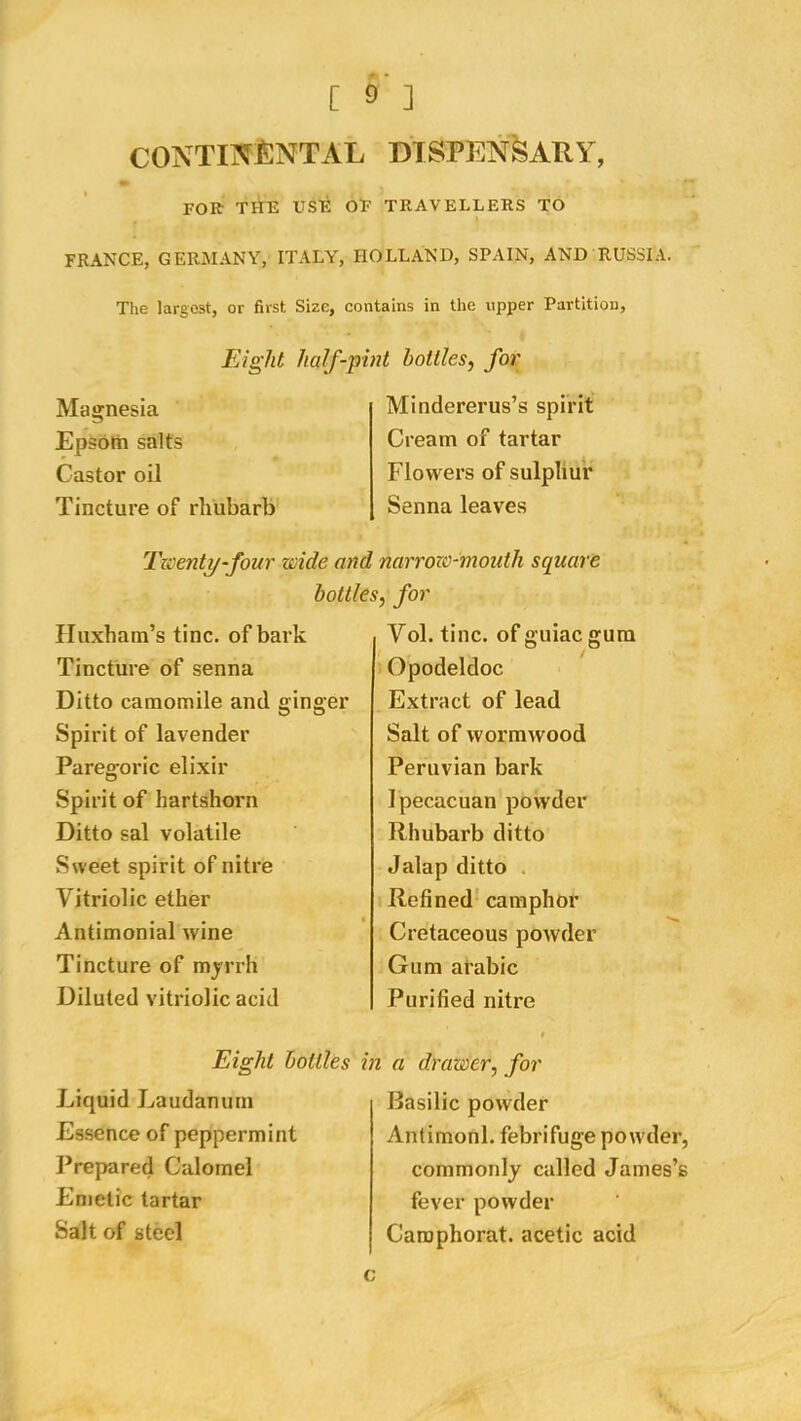 [ 9 ]
CONTINENTAL DISPENSARY,
FOR THE USE OF TRAVELLERS TO
FRANCE, GERMANY, ITALY, HOLLAND, SPAIN, AND RUSSIA.
The largest, or first Size, contains in the upper Partition,
Eight half-pint bottles, for
Magnesia
Epsom salts
Castor oil
Tincture of rhubarb
Mindererus's spirit
Cream of tartar
Flowers of sulphur
Senna leaves
Twenty-four wide and narrow-mouth square
bottles, for
Huxham's tinc. of bark
Tincture of senna
Ditto camomile and ginger
Spirit of lavender
Paregoric elixir
Spirit of hartshorn
Ditto sal volatile
Sweet spirit of nitre
Vitriolic ether
Antimonial wine
Tincture of myrrh
Diluted vitriolic acid
Vol. tinc. of guiac gum
Opodeldoc
Extract of lead
Salt of wormwood
Peruvian bark
Ipecacuan powder
Rhubarb ditto
Jalap ditto
Refined camphor
Cretaceous powder
Gum arabic
Purified nitre
Eight bottles in a drawer, for
Liquid Laudanum
Essence of peppermint
Prepared Calomel
Emetic tartar
Salt of steel
Basilic powder
Antimonl. febrifuge powder,
commonly called James's
fever powder
Camphorat. acetic acid
C